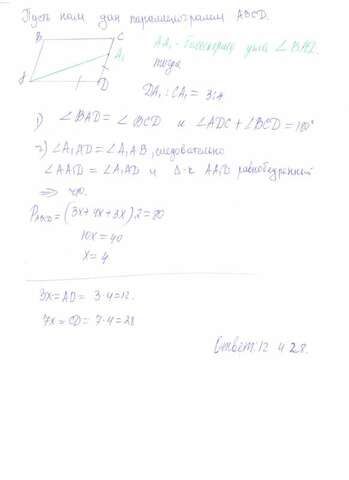 Пусть нам дан параллелограмм ABCD.
B C
A₁
A D
AA₁ - биссектриса угла ∠BAD.
тогда
DA₁ : CA₁ = 3:4
1) ∠BAD = ∠BCD и ∠ADC + ∠BCD = 180°
2) ∠A₁AD = ∠A₁AB, следовательно
∠AA₁D = ∠A₁AD и Δ-к AA₁D равнобедренный
⇒
P = (3x + 4x + 3x) 2 = 80
10x = 40
x = 4
3x = AD = 3·4 = 12.
7x = CD = 7·4 = 28
Ответ: 12 и 28.